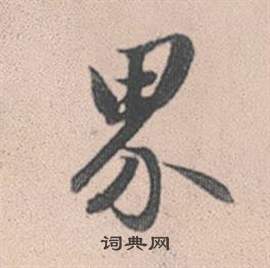 界
词典网